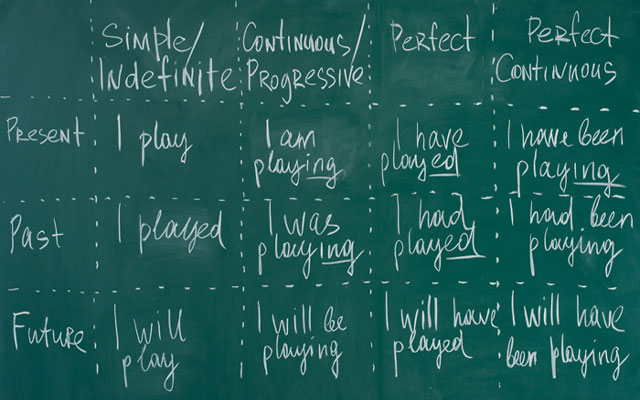 Simple/
Indefinite
Continuous/
Progressive
Perfect
Perfect
Continuous
Present
I play
I am
playing
I have
played
I have been
playing
Past
I played
I was
playing
I had
played
I had been
playing
Future
I will
play
I will be
playing
I will have
played
I will have
been playing